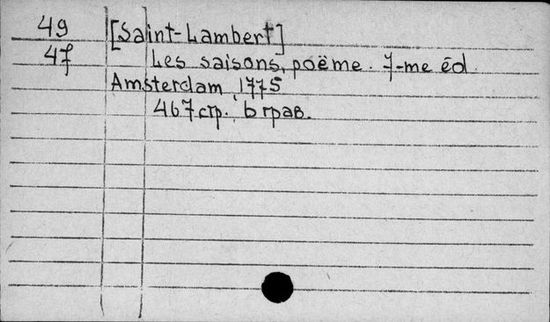 49 [Saint-Lambert]
47 Les saisons, poëme. 7-me éd.
Amsterdam, 1775
467 стр. 6 грав.